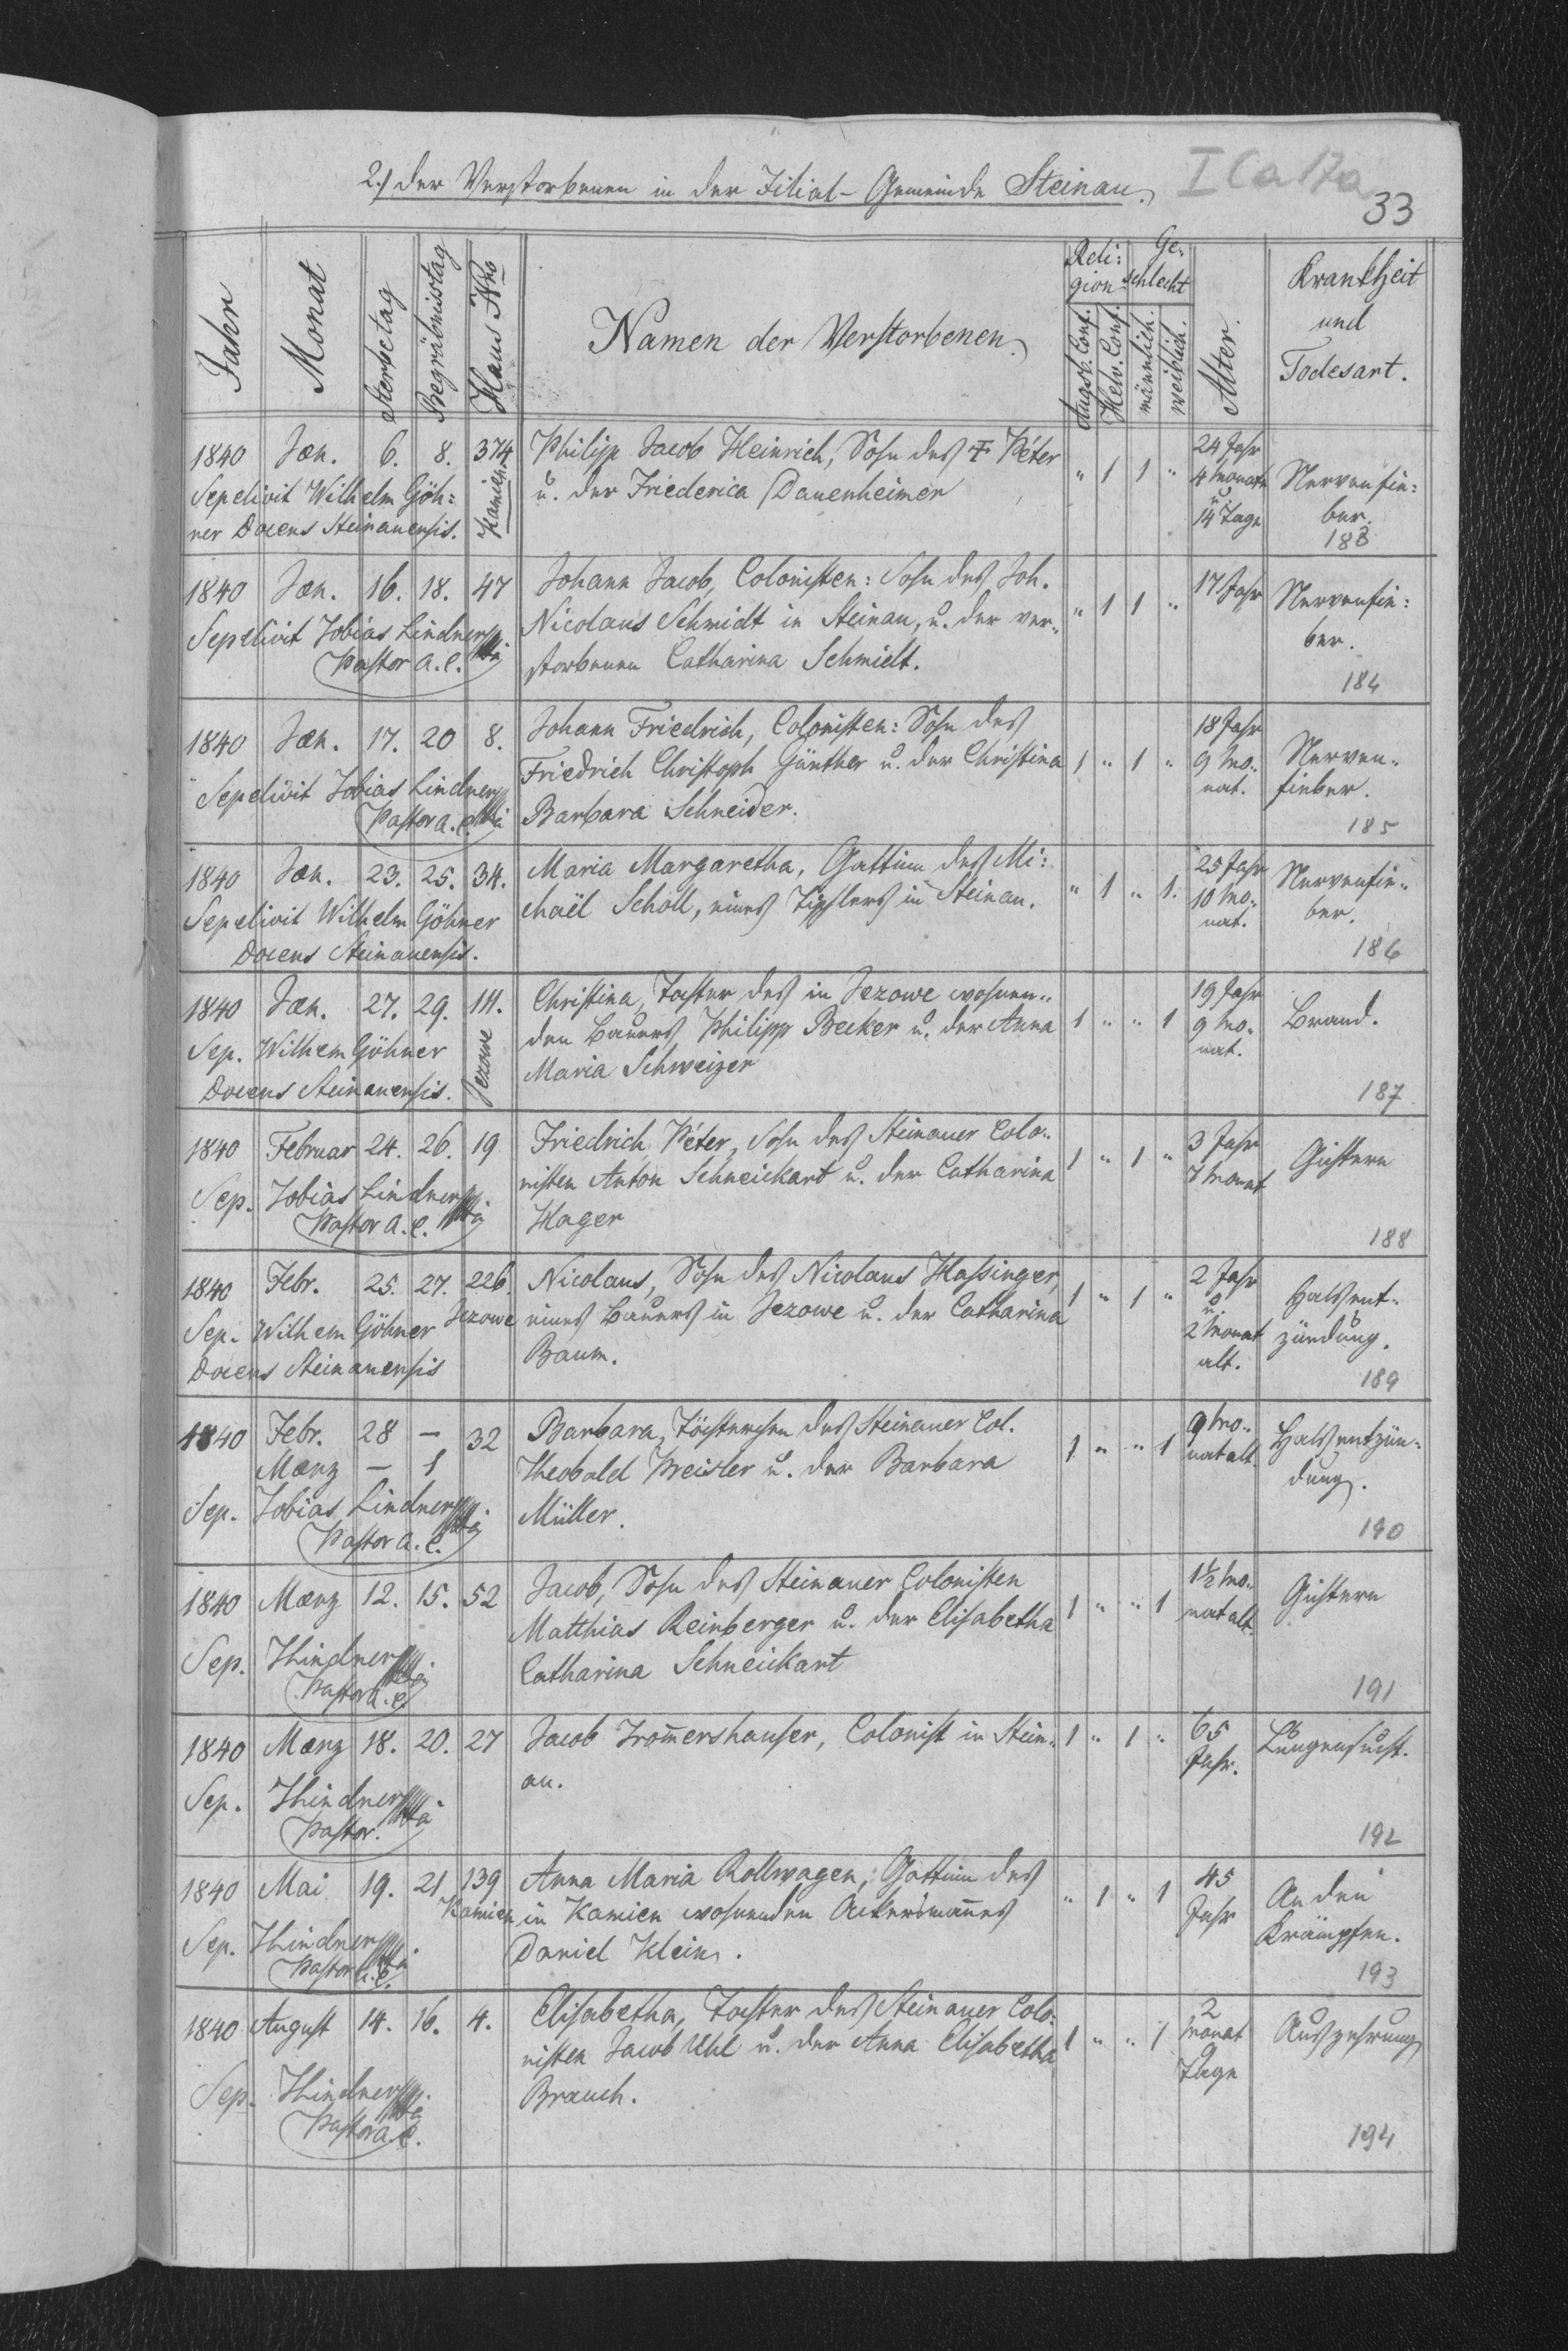 2.) der Verstorbenen in der Filial-Gemeinde Steinau.
I Ca 17a
33
Jahr
Monat
Sterbetag
Begräbnisstag
Haus Nro
Namen der Verstorbenen.
Reli:
gion
Augsb. Conf.
Helv. Conf.
Ge-
schlecht
männlich.
weiblich.
Alter.
Krankheit
und
Todesart.
1840 Jæn. 6. 8. 374 Philipp Jacob Heinrich, Sohn des ✝ Péter " 1 1 " 24 Jahr
Sepelivit Wilhelm Göh: Kamien u. der Friederica Dauenheimer 4 Monate Nervenfie:
ner Docens Steinauensis. u. 14 Tage ber.
183
1840 Jæn. 16. 18. 47 Johann Jacob, Colonisten: Sohn des Joh. " 1 1 " 17 Jahr Nervenfie:
Sepelivit Tobias Lindner Nicolaus Schmidt in Steinau, u. der ver- ber.
Pastor A. C. storbenen Catharina Schmidt.
184
1840 Jæn. 17. 20 8. Johann Friedrich, Colonisten: Sohn des 18 Jahr
Friedrich Christoph Günther u. der Christina 1 " 1 " 9 Mo- Nerven-
Sepelivit Tobias Lindner Barbara Schneider. nat. fieber.
Pastor A. C.
185
1840 Jæn. 23. 25. 34. Maria Margaretha, Gattinn des Mi: " 1 " 1. 25 Jahr Nervenfie-
Sepelivit Wilhelm Göhner chaël Scholl, eines Tischlers in Steinau. 10 Mo- ber.
Docens Steinauensis. nat.
186
1840 Jæn. 27. 29. 111. Christina, Tochter des in Jezowe wohnen- 19 Jahr
Sep. Wilhem Göhner Jezowe den Bauers Philipp Becker u. der Anna 1 " " 1 9 Mo- Brand.
Docens Steinauensis. Maria Schweizer nat.
187
1840 Februar 24. 26. 19 Friedrich Péter, Sohn des Steinauer Colo- 1 " 1 " 3 Jahr Gichtern
Sep. Tobias Lindner nisten Anton Schneickart u. der Catharina 7 Monat
Pastor A. C. Hager
188
1840 Febr. 25. 27. 226. Nicolaus, Sohn des Nicolaus Hassinger, 1 " 1 " 2 Jahr Halsent-
Sep. Wilhem Göhner Jezowe eines Bauers in Jezowe u. der Catharina u. 2 Monat zündung.
Docens Steinauensis Baum. alt.
189
1840 Febr. 28 — 32 Barbara, Töchterchen des Steinauer Col. 1 " " 1 9 Mo- Halsentzün-
Mærz — 1 Theobald Preisler u. der Barbara nat alt dung.
Sep. Tobias Lindner Müller.
Pastor A. C.
190
1840 Mærz 12. 15. 52 Jacob, Sohn des Steinauer Colonisten 1 " " 1 1½ Mo- Gichtern
Matthias Reinberger u. der Elisabetha nat alt.
Sep. TLindner Catharina Schneickart
Pastor A. C.
191
1840 Mærz 18. 20. 27 Jacob Trom̅ershauser, Colonist in Stein- 1 " 1 " 65 Lungensucht.
Sep. TLindner au. Jahr.
Pastor.
192
1840 Mai 19. 21. 139 Anna Maria Rollwagen, Gattinn des " 1 " 1 45 An den
Kamien in Kamien wohnenden Ackersman̅es Jahr Krämpfen.
Sep. TLindner Daniel Klein.
Pastor A. C.
193
1840 August 14. 16. 4. Elisabetha, Tochter des Steinauer Colo- 1 " " 1 2 Monat Auszehrung
nisten Jacob Uhl u. der Anna Elisabetha 9 Tage
Sep. TLindner Brauch.
Pastor A. C.
194